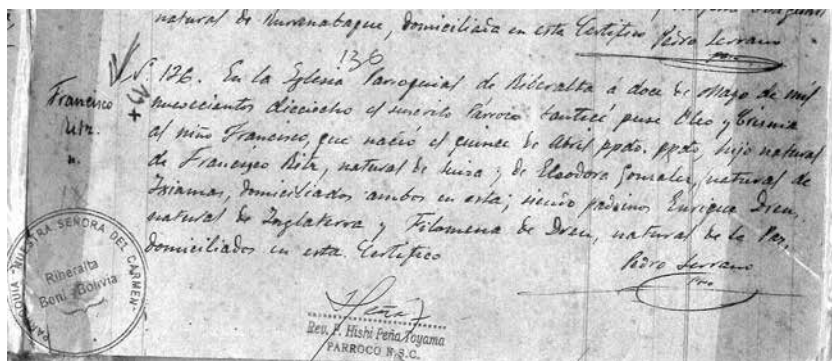 natural de Rurenabaque, domiciliada en esta Certifico
Pedro Serrano
136
Francisco
Ritz.
n.
S. 136. En la Iglesia Parroquial de Riberalta á doce de Mayo de mil
nuevecientos dieciocho el suscrito Párroco bauticé puse Oleo y Crisma
al niño Francisco, que nació el quince de Abril ppdo. ppdo, hijo natural
de Francisco Ritz, natural de Suiza y de Eleodora Gonzales, natural de
Ixiamas, domiciliados ambos en esta; siendo padrinos Enrique Dreu,
natural de Inglaterra y Filomena de Dreu, natural de La Paz,
domiciliados en esta. Certifico
Pedro Serrano
Pro
PARROQUIA "NUESTRA SEÑORA DEL CARMEN"
Riberalta
Beni - Bolivia
Rev. P. Hishi Peña Toyama
PARROCO N.S.C.